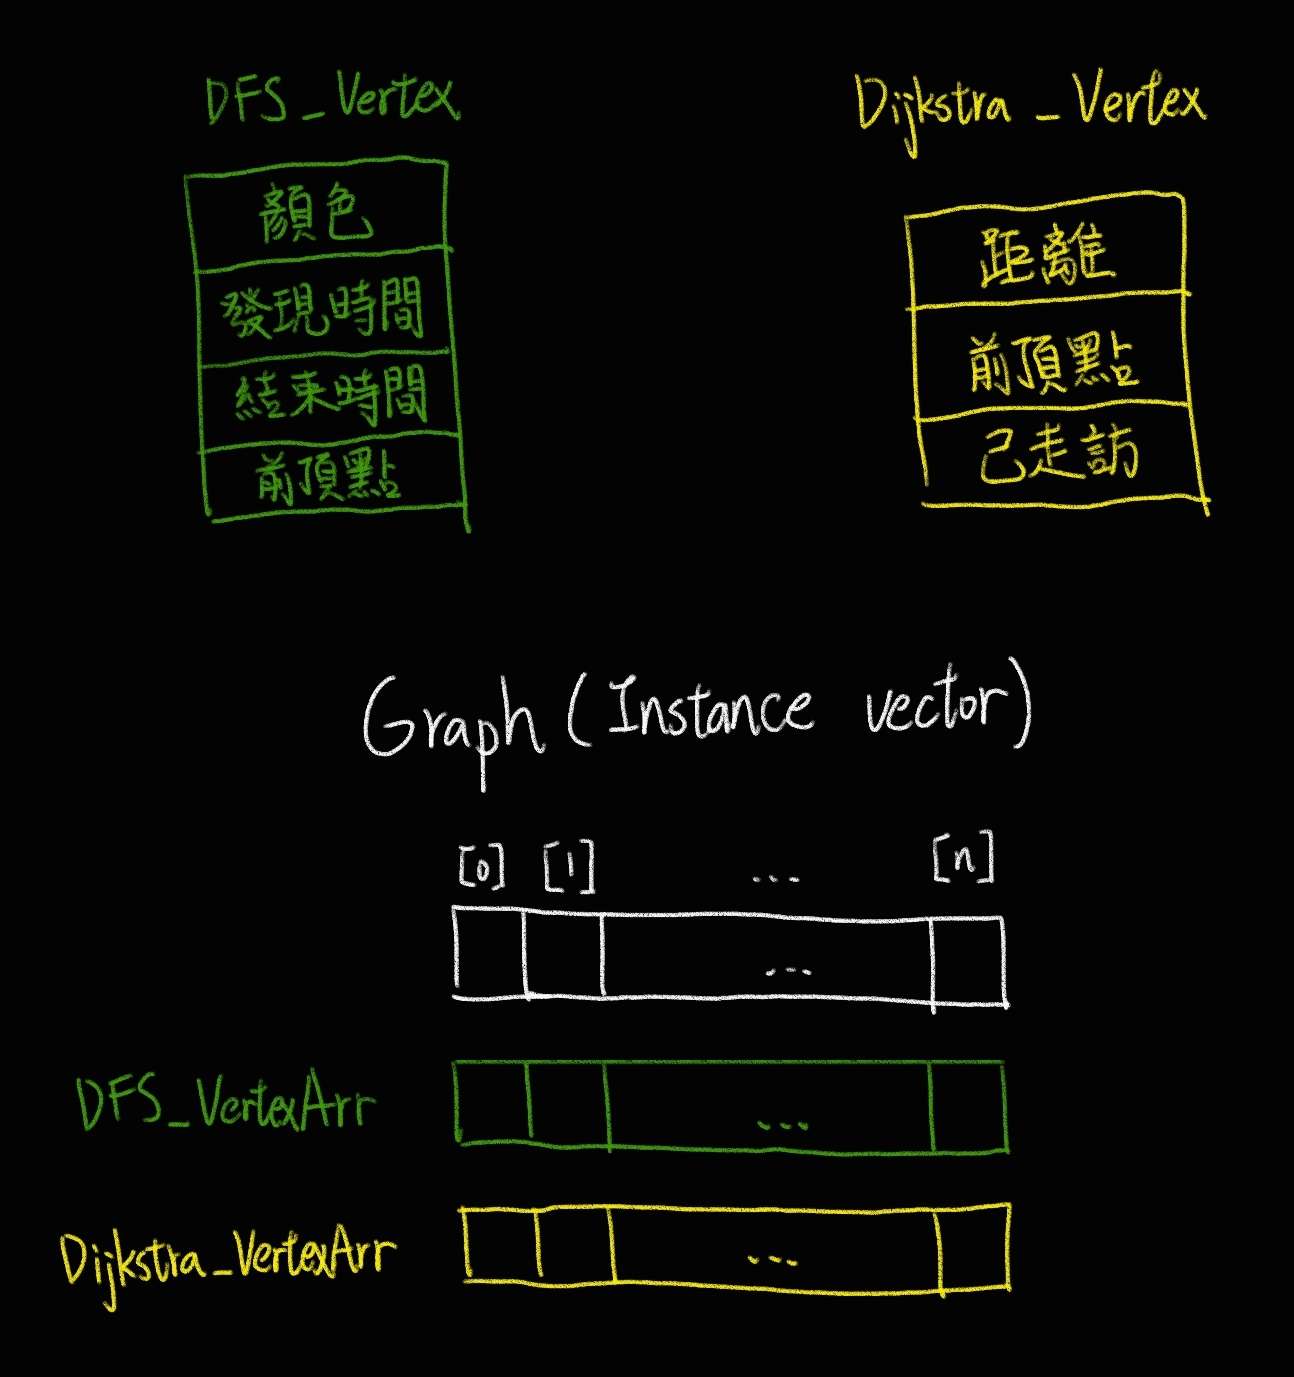 DFS_Vertex
顏色
發現時間
結束時間
前頂點
Dijkstra_Vertex
距離
前頂點
已走訪
Graph (Instance vector)
[0] [1] ... [n]
...
DFS_VertexArr ...
Dijkstra_VertexArr ...